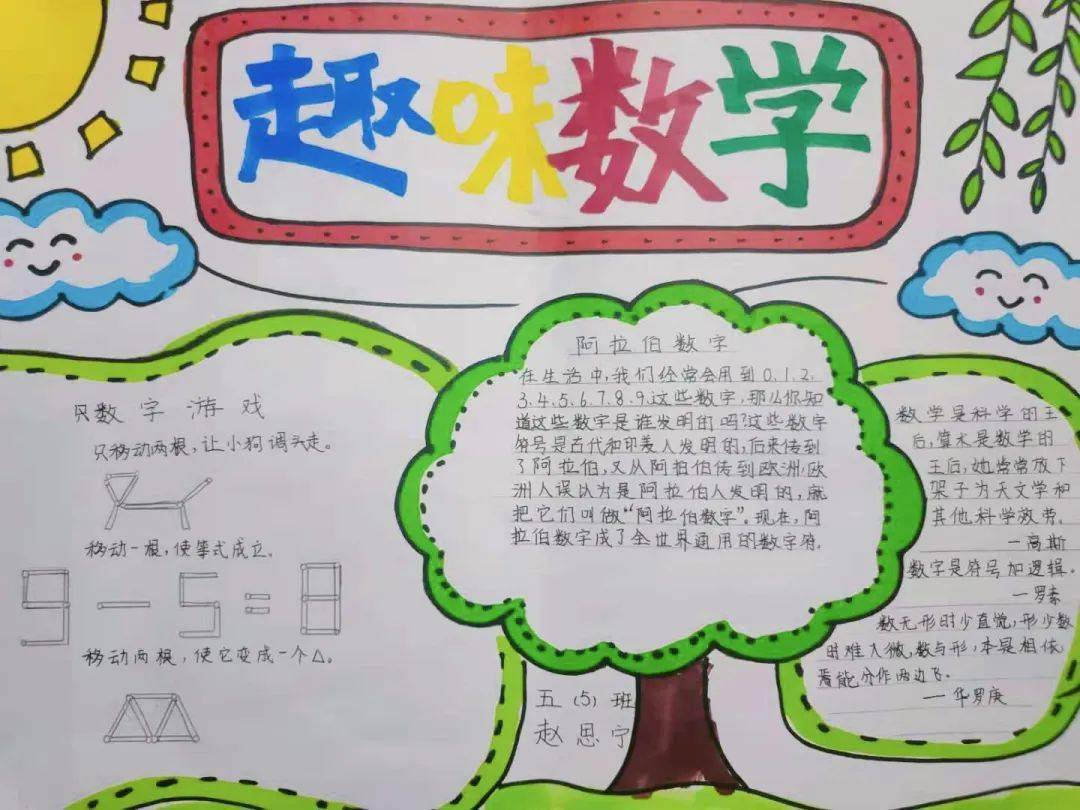 趣味数学
只数字游戏
只移动两根,让小狗调头走。
移动一根,使等式成立。
9-5=8
移动两根,使它变成一个△。
阿拉伯数字
在生活中,我们经常会用到0.1.2.
3.4.5.6.7.8.9.这些数字,那么你知
道这些数字是谁发明的吗?这些数字
符号是古代和印美人发明的,后来传到
了阿拉伯,又从阿拍伯传到欧洲,欧
洲人误认为是阿拉伯人发明的,就
把它们叫做“阿拉伯数字”。现在,阿
拉伯数字成了全世界通用的数字符.
五(5)班
赵思宁
数学是科学的王
后,算术是数学的
王后,她常常放下
架子为天文学和
其他科学效劳。
一高斯
数字是符号加逻辑。
一罗素
数无形时少直觉,形少数
时难入微,数与形,本是相依
焉能分作两边飞。
一华罗庚